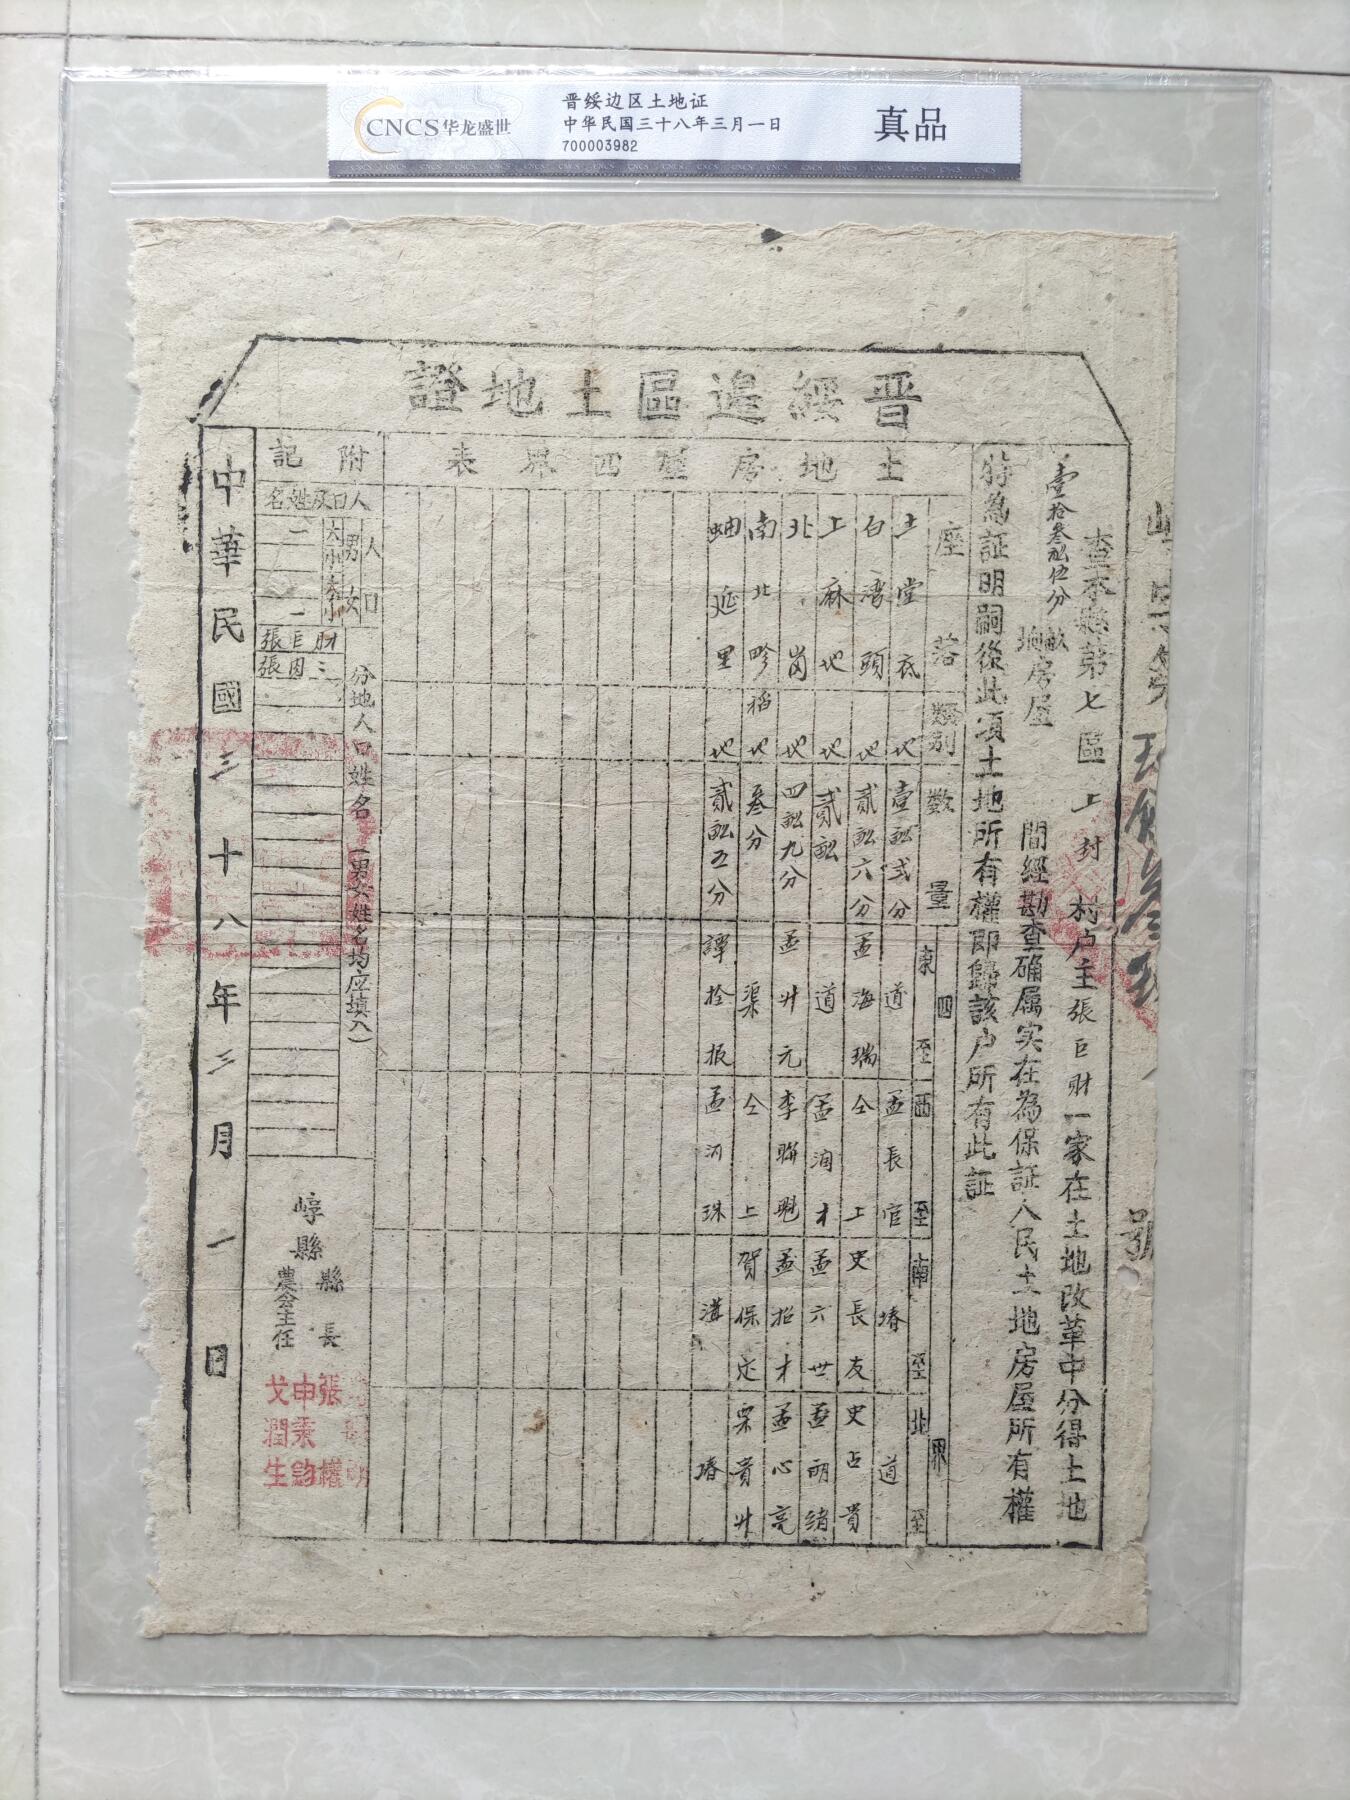 CNCS华龙盛世
晋绥边区土地证
中华民国三十八年三月一日
700003982
真品
晋綏邊區土地證
查本縣第七區上封村户主張巨財一家在土地改革中分得土地
壹拾叁畝伍分
房屋
間經勘查确属实在為保証人民土地房屋所有權
特為証明嗣後此項土地所有權即歸該户所有此証
土地房屋四界表
座落
類別
數量
四界
東至
西至
南至
北至
土堂底 地 壹畝弍分 道 孟長官 堾 道
白灣頭 地 貳畝六分 孟海瑞 仝上 史長友 史占貴
上麻地 地 貳畝 道 孟润才 孟六世 孟明緒
北岗 地 四畝九分 孟廾元 李聯魁 孟招才 孟心亮
南北畛 稻地 叁分 渠 仝上 賀保定 宋貴廾
蚰延里 地 貳畝五分 譚拴报 孟 珠 溝 堾
附記
人口及姓名
人口
男
女
大小
大小
二
二
分地人口姓名(男女姓名均应填入)
張巨財
張因三
崞縣
縣長
農会主任
張 權
申秉鈞
戈潤生
中華民國三十八年三月一日
號